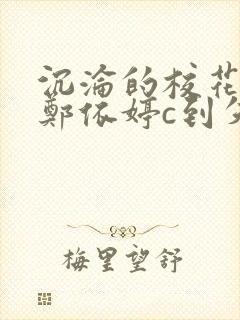 沉沦的校花
郑依婷c到
梅里望舒